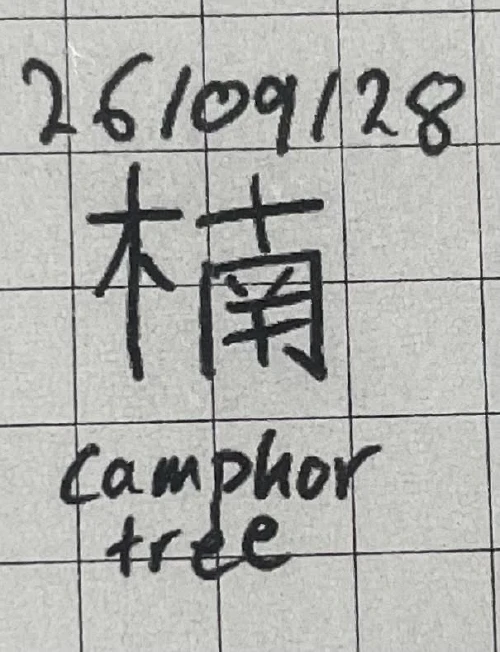 26/09/28
楠
camphor
tree